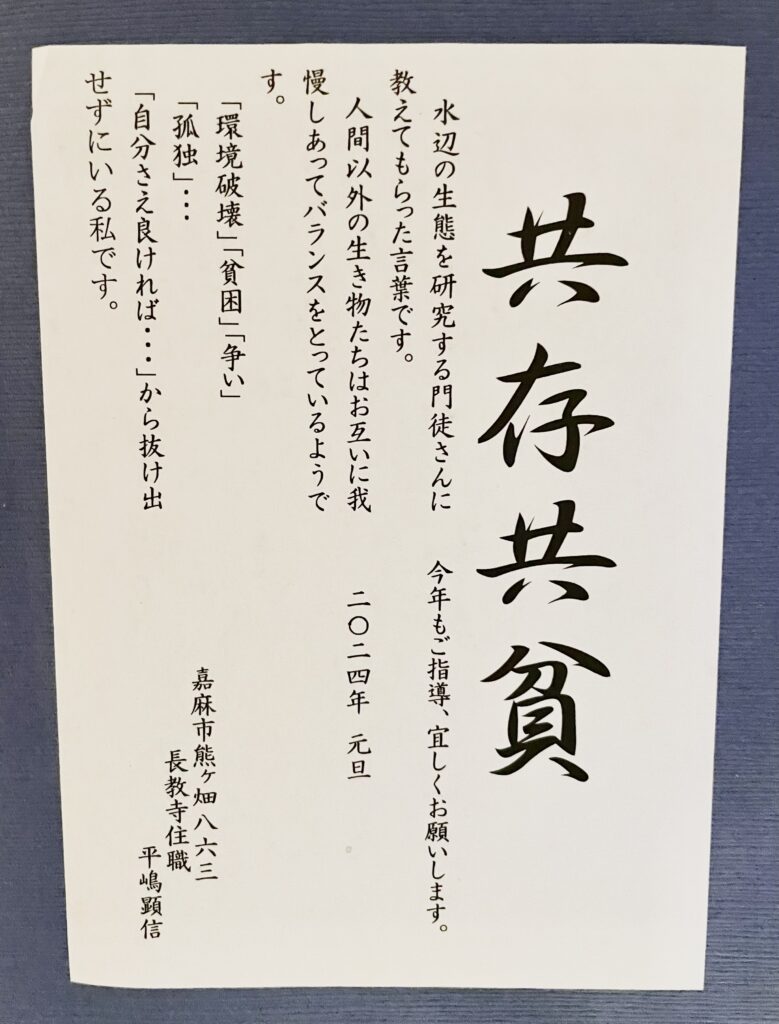 共存共貧
水辺の生態を研究する門徒さんに
教えてもらった言葉です。
人間以外の生き物たちはお互いに我
慢しあってバランスをとっているようで
す。
「環境破壊」「貧困」「争い」
「孤独」・・・
「自分さえ良ければ・・・」から抜け出
せずにいる私です。
今年もご指導、宜しくお願いします。
二〇二四年 元旦
嘉麻市熊ヶ畑八六三
長教寺住職
平嶋顕信